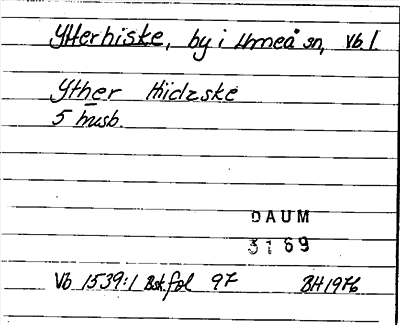 Ytterhiske, by i Umeå sn, Vb l.
Yther Hiidzske
5 husb.
DAUM
3169
Vb 1539:1 Bsk. fol 97 BH 1976